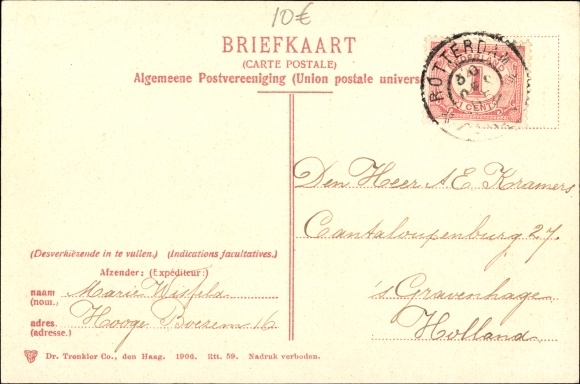 10€
BRIEFKAART
(CARTE POSTALE)
Algemeene Postvereeniging (Union postale univers
ROTTERDAM
1
1 CENT
Den Heer A E Kramers
Cantaloupenburg 27.
's Gravenhage
Holland
(Desverkiezende in te vullen.) (Indications facultatives.)
Afzender: (Expéditeur:)
naam Marie Wisfeld
(nom.)
adres. Hooge Boezem 16
(adresse.)
Dr. Trenkler Co., den Haag. 1906. Rtt. 59. Nadruk verboden.